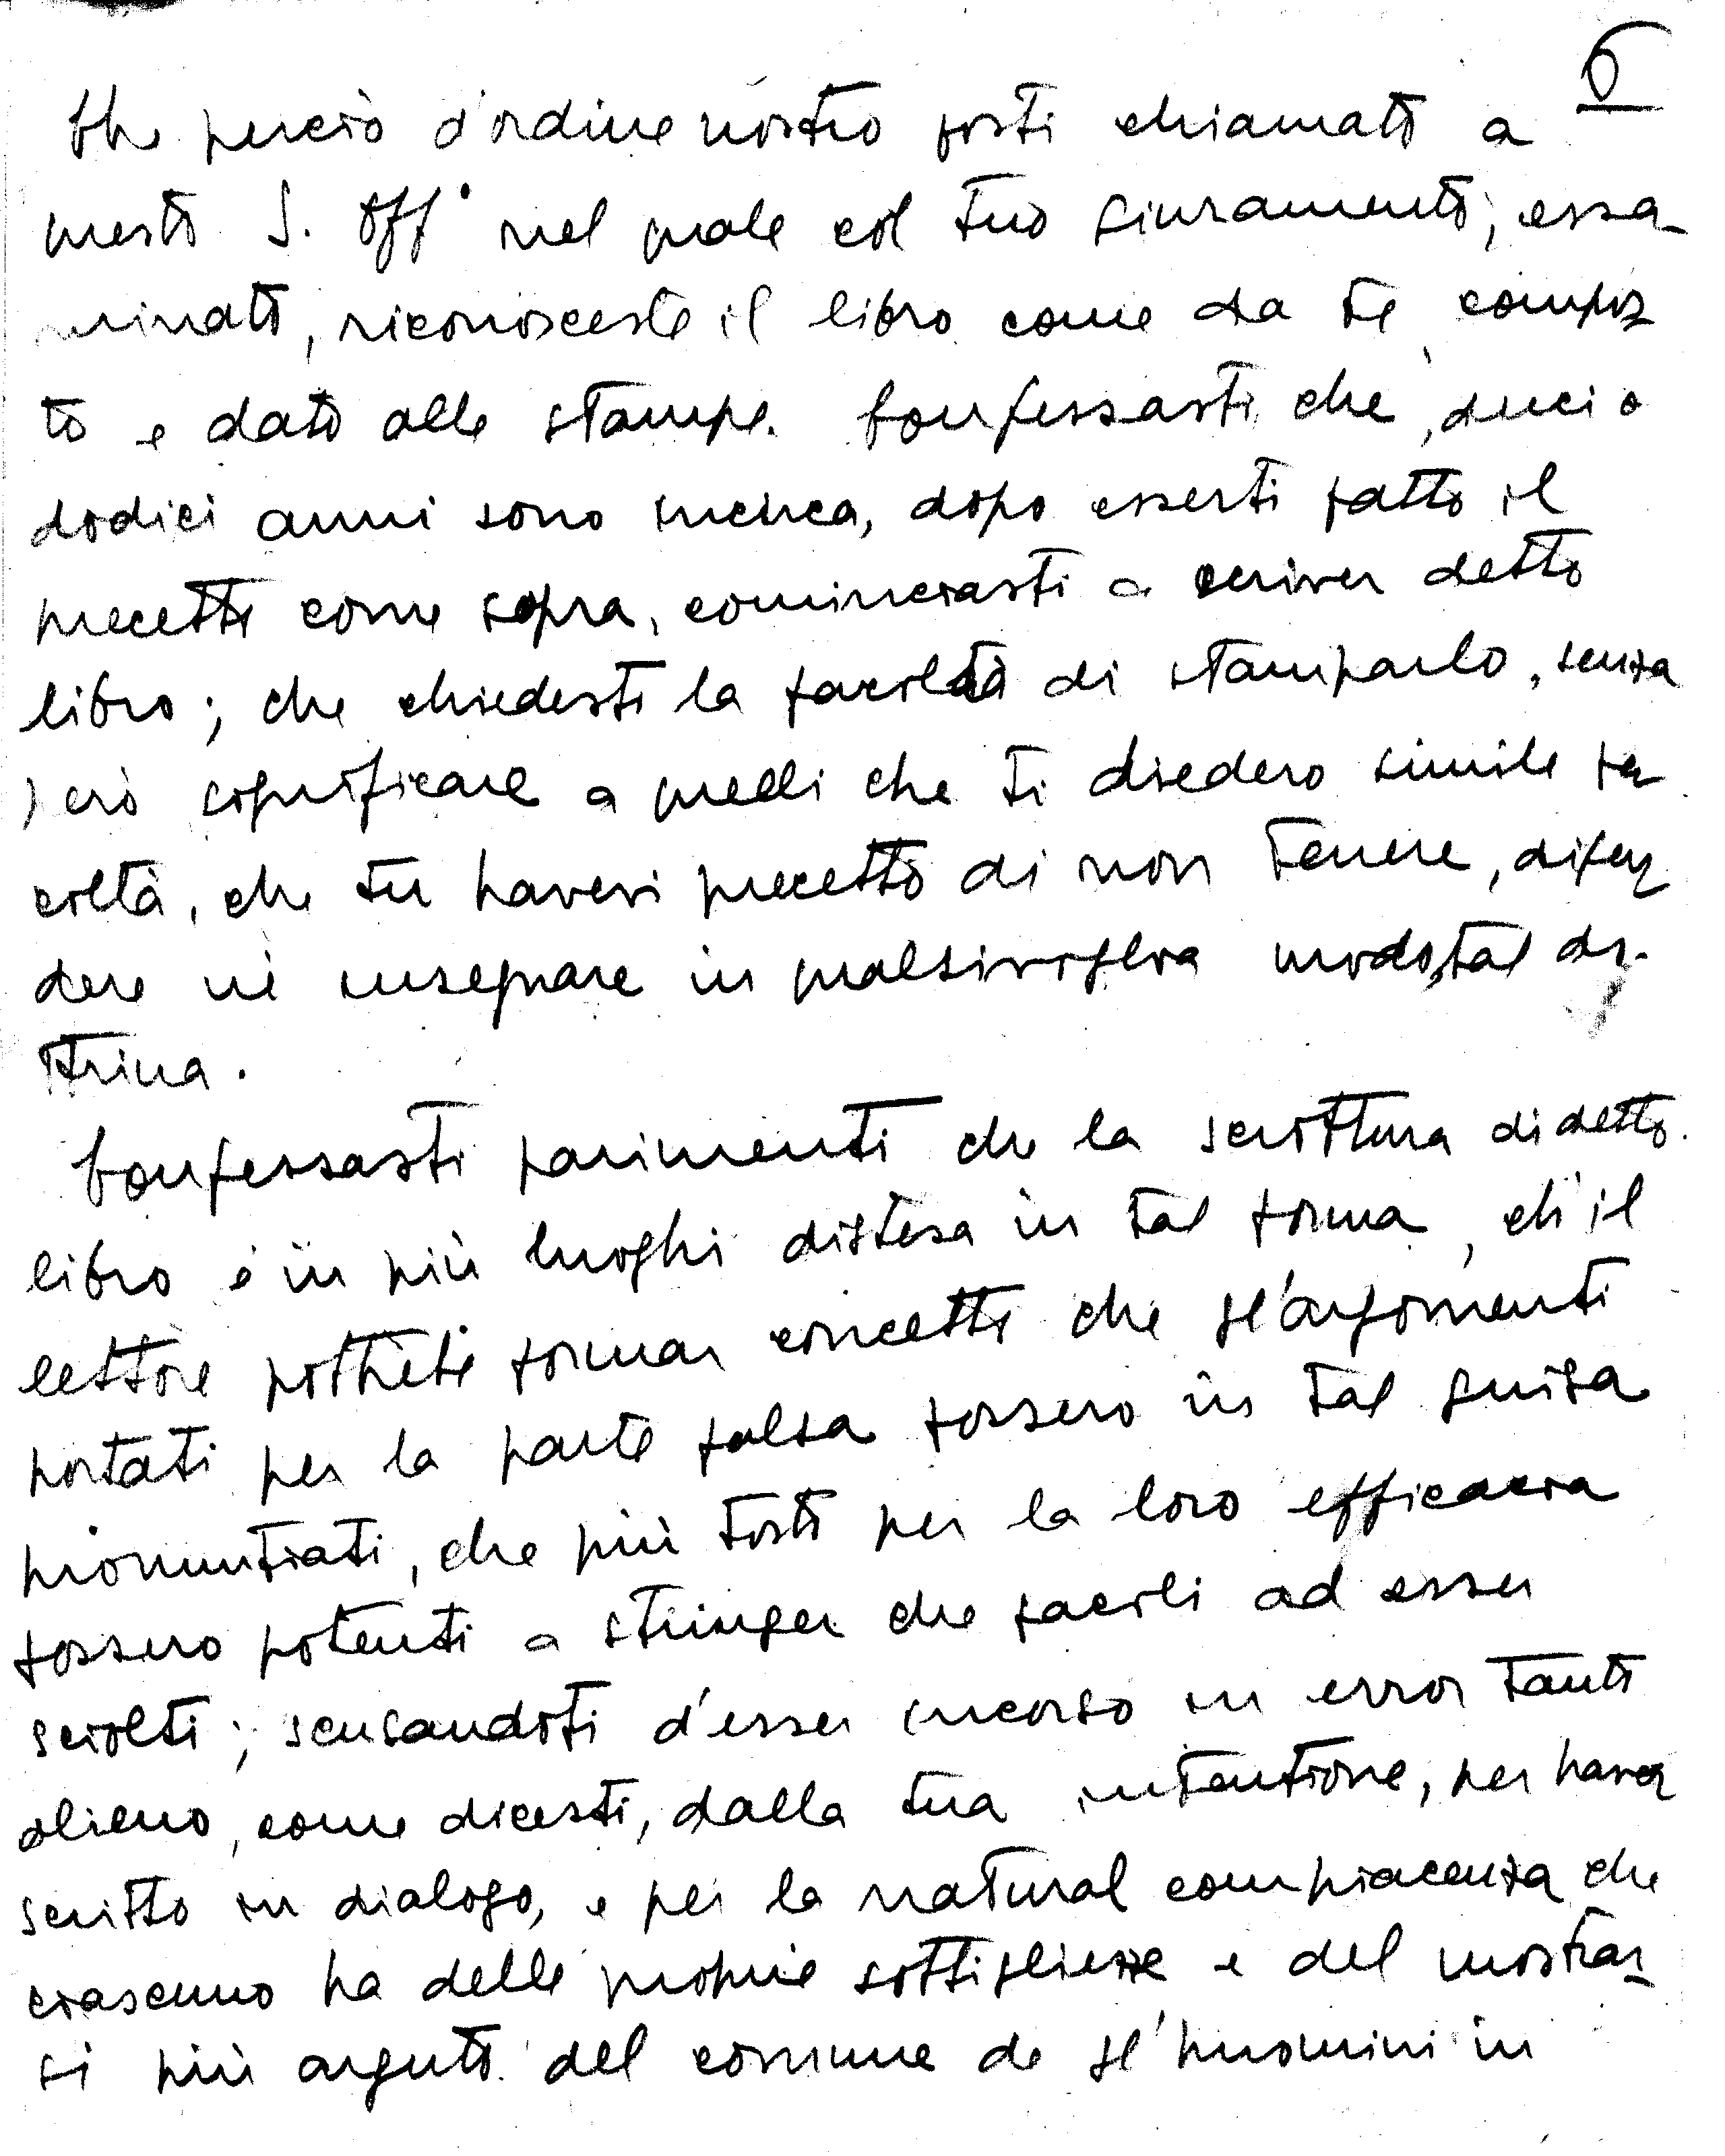 6
Che perciò d'ordine nostro fosti chiamato a
questo S. Off° nel quale col tuo giuramento, essa-
minato, riconosceste il libro come da te compos
to e dato alle stampe. Confessasti che, dieci o
dodici anni sono incirca, dopo esserti fatto il
precetto come sopra, cominciasti a scriver detto
libro; che chiedesti la facoltà di stamparlo, senza
però significare a quelli che ti diedero simile fa
coltà, che tu havevi precetto di non tenere, difen
dere né insegnare in qualsivoglia modo, tal dot-
trina.
Confessasti parimenti che la scrittura di detto
libro è in più luoghi distesa in tal forma, ch'il
lettore potrebbe formar concetto che gl'argomenti
portati per la parte falsa fossero in tal guisa
pronuntiati, che più tosto per la loro efficacia
fossero potenti a stringer che facili ad esser
sciolti; scusandoti d'esser incorso in error tanto
alieno, come dicesti, dalla tua intentione, per haver
scritto in dialogo, e per la natural compiacenza che
ciascuno ha delle proprie sottigliezze e del mostrar
si più arguto del comune de gl'huomini in